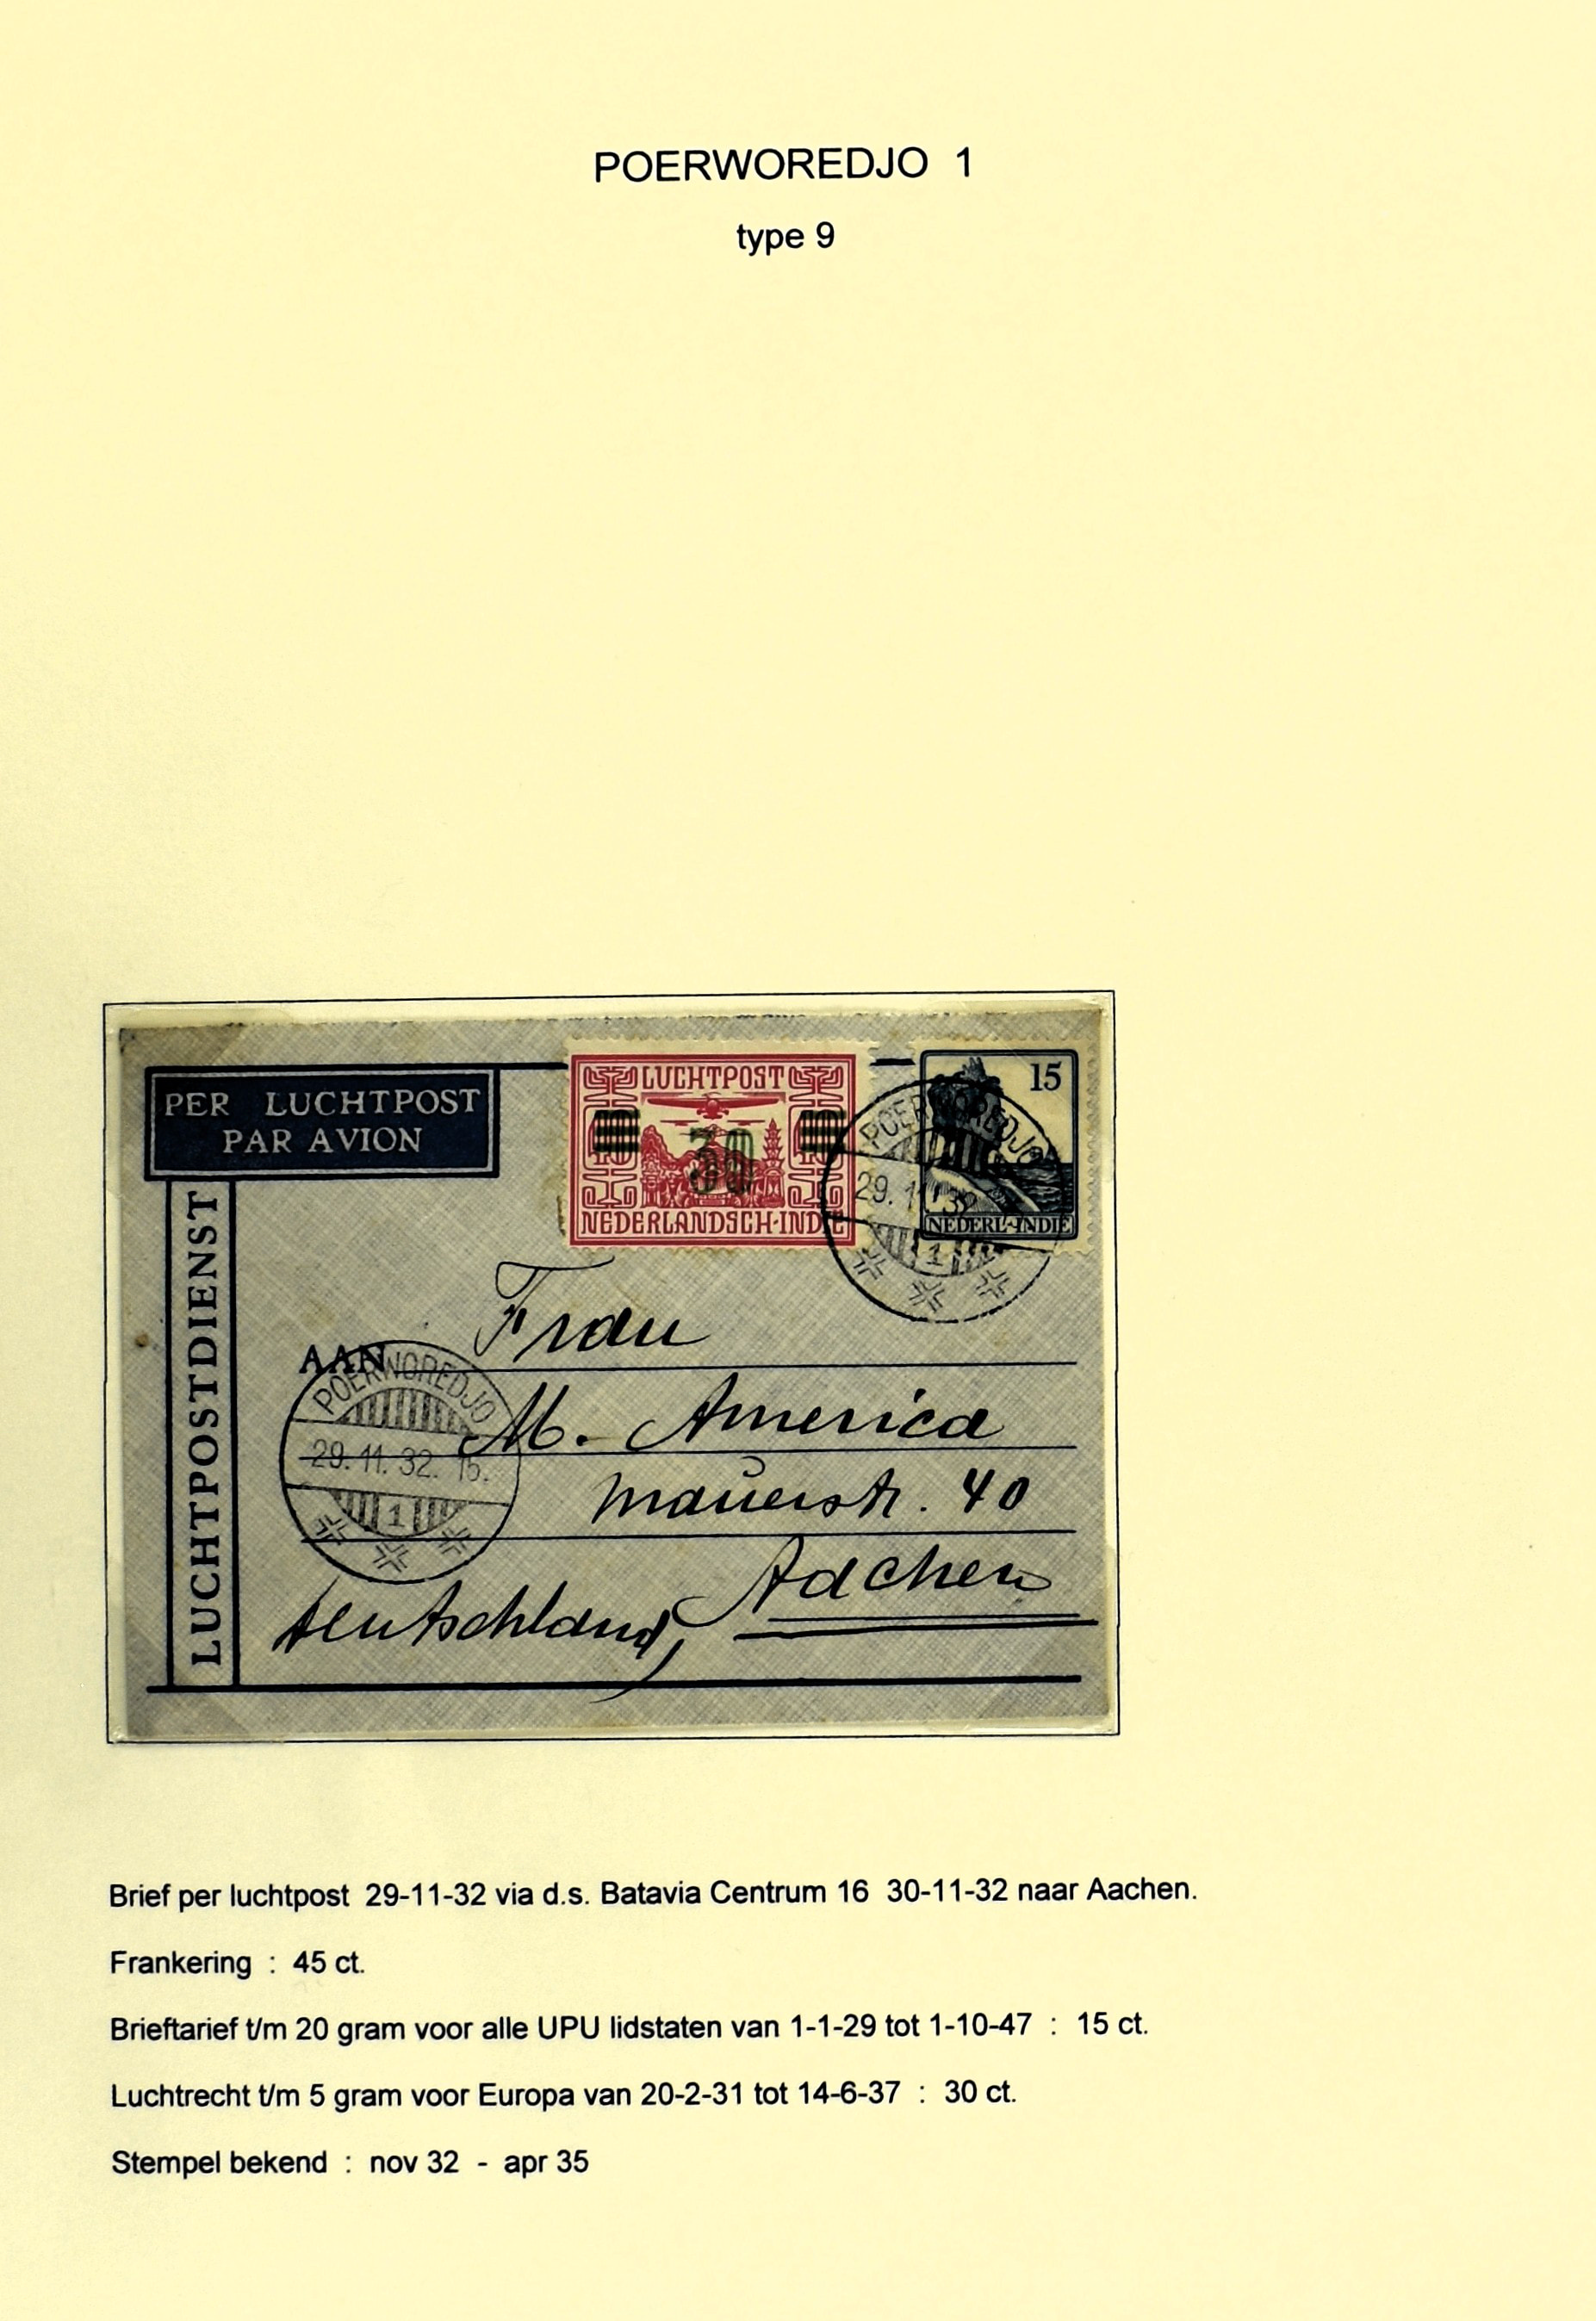 POERWOREDJO 1
type 9
PER LUCHTPOST
PAR AVION
LUCHTPOSTDIENST
LUCHTPOST
40 40
30
NEDERLANDSCH-INDIE
15
NEDERL-INDIE
POERWOREDJO
29.11.32
1
Frau
AAN
M. America
Mauerstr. 40
Aachen
Deutschland,
POERWOREDJO
29.11.32. 16.
1
Brief per luchtpost 29-11-32 via d.s. Batavia Centrum 16 30-11-32 naar Aachen.
Frankering : 45 ct.
Brieftarief t/m 20 gram voor alle UPU lidstaten van 1-1-29 tot 1-10-47 : 15 ct.
Luchtrecht t/m 5 gram voor Europa van 20-2-31 tot 14-6-37 : 30 ct.
Stempel bekend : nov 32 - apr 35